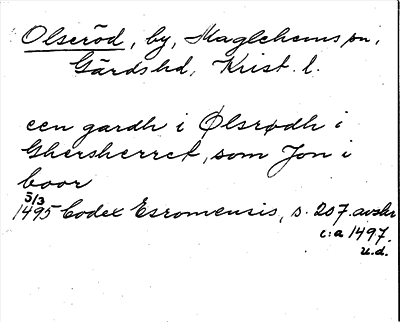 Olseröd, by, Maglehems sn,
Gärds hd, Krist. l.
een gardh i Ølsrødh i
Ghersherret, som Jon i
boor
5/3
1495 Codex Esromensis, s. 207. avskr
c:a 1497.
u.d.